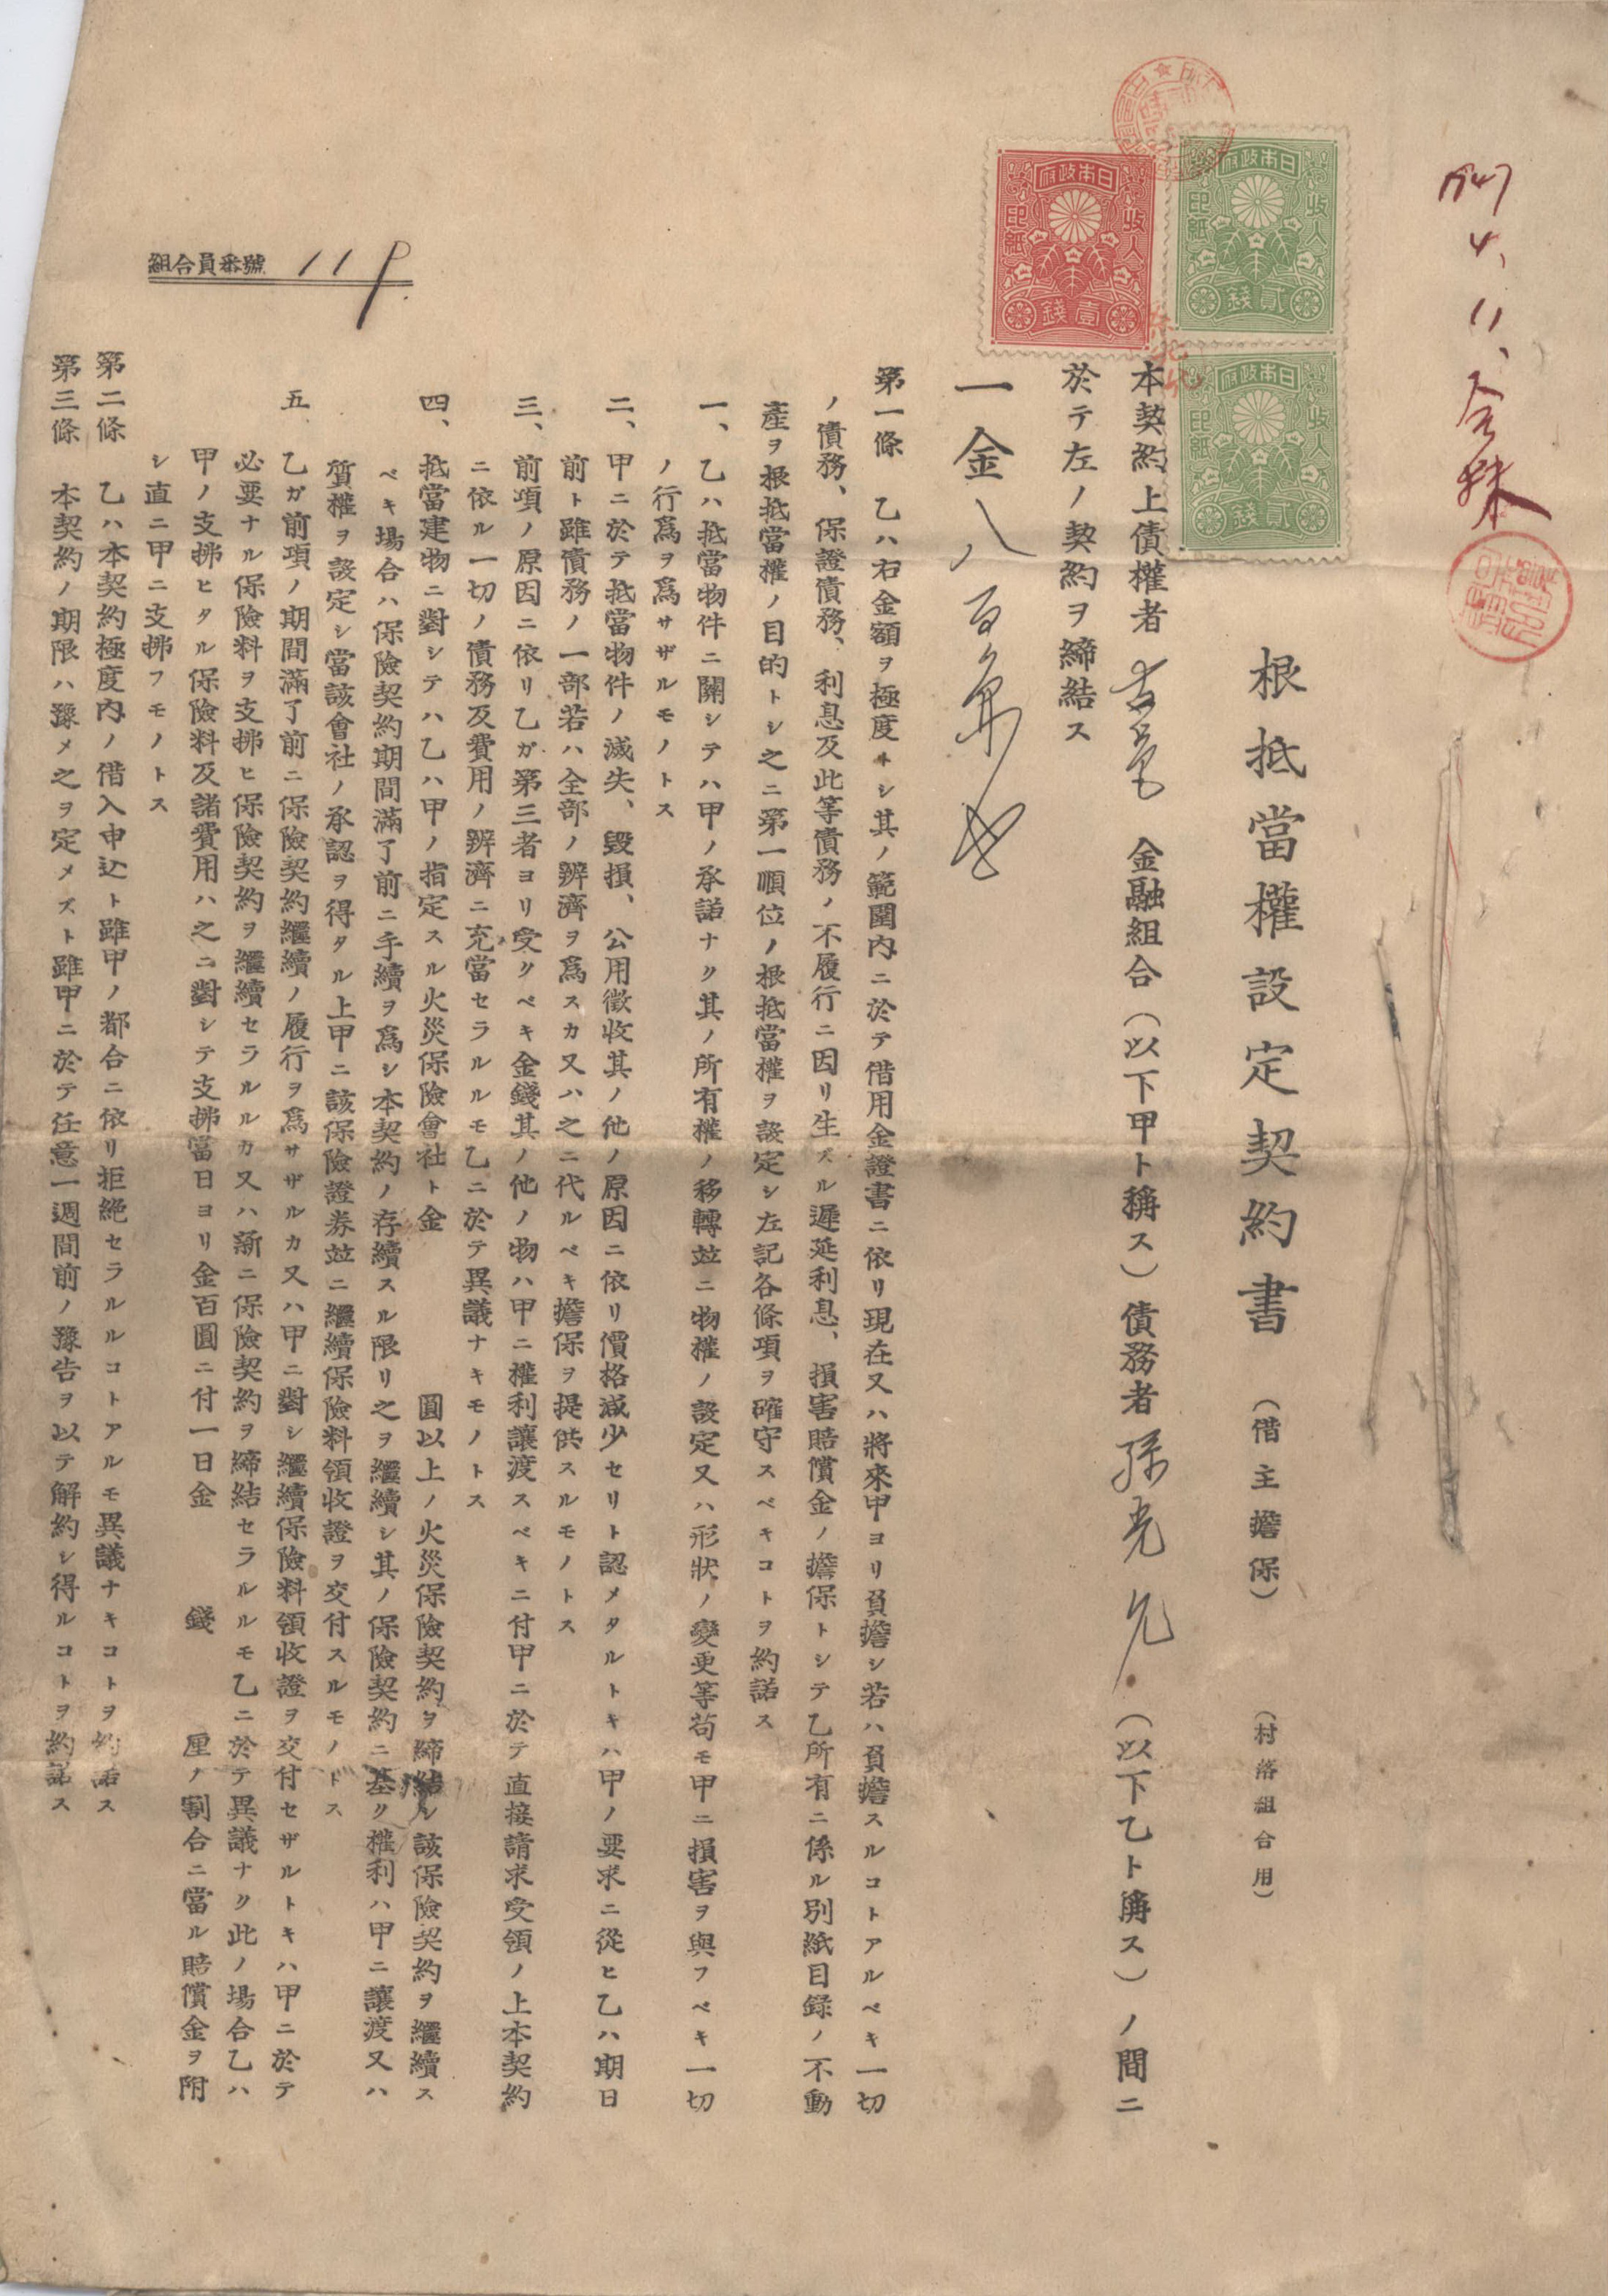 4、11、
根抵當權設定契約書 (借主擔保) (村落組合用)
本契約上債權者 金融組合(以下甲ト稱ス)債務者孫光允(以下乙ト稱ス)ノ間ニ
於テ左ノ契約ヲ締結ス
一金八百
第一條 乙ハ右金額ヲ極度トシ其ノ範圍內ニ於テ借用金證書ニ依リ現在又ハ將來甲ヨリ負擔シ若ハ負擔スルコトアルベキ一切
ノ債務、保證債務、利息及此等債務ノ不履行ニ因リ生ズル遲延利息、損害賠償金ノ擔保トシテ乙所有ニ係ル別紙目錄ノ不動
產ヲ根抵當權ノ目的トシ之ニ第一順位ノ根抵當權ヲ設定シ左記各條項ヲ確守スベキコトヲ約諾ス
一、乙ハ抵當物件ニ關シテハ甲ノ承諾ナク其ノ所有權ノ移轉並ニ物權ノ設定又ハ形狀ノ變更等苟モ甲ニ損害ヲ與フベキ一切
ノ行爲ヲ爲サザルモノトス
二、甲ニ於テ抵當物件ノ滅失、毀損、公用徵收其ノ他ノ原因ニ依リ價格減少セリト認メタルトキハ甲ノ要求ニ從ヒ乙ハ期日
前ト雖債務ノ一部若ハ全部ノ辨濟ヲ爲スカ又ハ之ニ代ルベキ擔保ヲ提供スルモノトス
三、前項ノ原因ニ依リ乙ガ第三者ヨリ受クベキ金錢其ノ他ノ物ハ甲ニ權利讓渡スベキニ付甲ニ於テ直接請求受領ノ上本契約
ニ依ル一切ノ債務及費用ノ辨濟ニ充當セラルルモ乙ニ於テ異議ナキモノトス
四、抵當建物ニ對シテハ乙ハ甲ノ指定スル火災保險會社ト金 圓以上ノ火災保險契約ヲ締結シ該保險契約ヲ繼續ス
ベキ場合ハ保險契約期間滿了前ニ手續ヲ爲シ本契約ノ存續スル限リ之ヲ繼續シ其ノ保險契約ニ基ク權利ハ甲ニ讓渡又ハ
質權ヲ設定シ當該會社ノ承認ヲ得タル上甲ニ該保險證券並ニ繼續保險料領收證ヲ交付スルモノトス
五 乙ガ前項ノ期間滿了前ニ保險契約繼續ノ履行ヲ爲サザルカ又ハ甲ニ對シ繼續保險料領收證ヲ交付セザルトキハ甲ニ於テ
必要ナル保險料ヲ支拂ヒ保險契約ヲ繼續セラルルカ又ハ新ニ保險契約ヲ締結セラルルモ乙ニ於テ異議ナク此ノ場合乙ハ
甲ノ支拂ヒタル保險料及諸費用ハ之ニ對シテ支拂當日ヨリ金百圓ニ付一日金 錢 厘ノ割合ニ當ル賠償金ヲ附
シ直ニ甲ニ支拂フモノトス
第二條 乙ハ本契約極度內ノ借入申込ト雖甲ノ都合ニ依リ拒絕セラルルコトアルモ異議ナキコトヲ約諾ス
第三條 本契約ノ期限ハ豫メ之ヲ定メズト雖甲ニ於テ任意一週間前ノ豫告ヲ以テ解約シ得ルコトヲ約諾ス
組合員番號 119
日本政府
收入印紙
貳錢
日本政府
收入印紙
貳錢
日本政府
收入印紙
壹錢